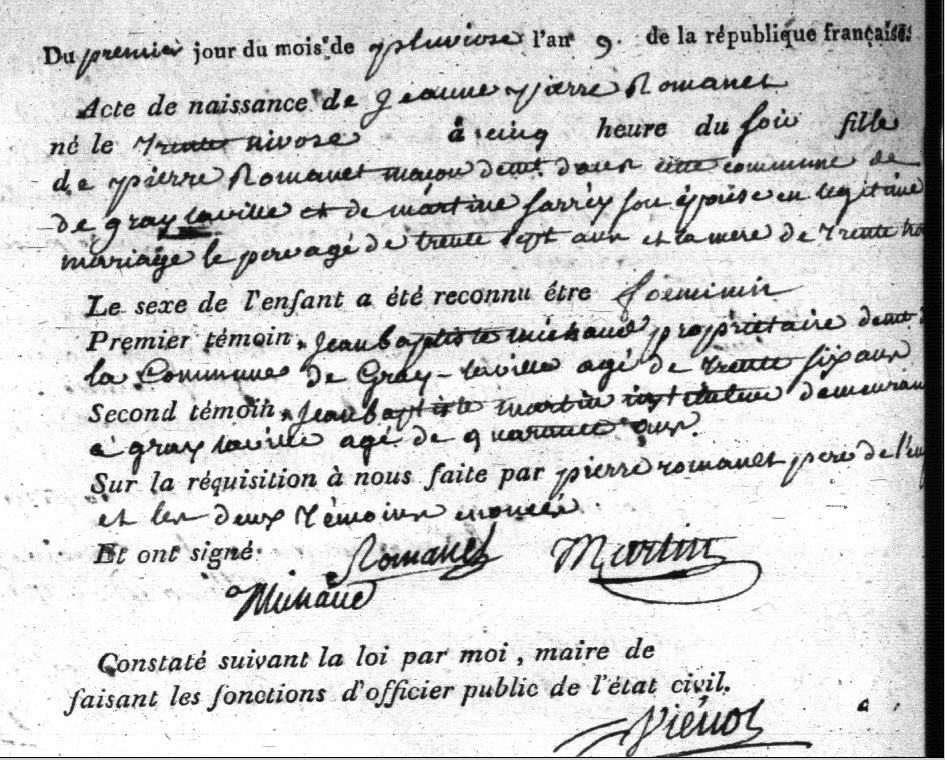 Du premier jour du mois de pluviose l'an 9. de la république française.
Acte de naissance de Jeanne pierre Romanet
né le trente nivose à cinq heure du soir fille
de pierre Romanet maçon demt dans cette commune de
de gray laville et de martine sarrey son épouse en legitime
mariage le pere agé de trente sept ans et la mere de trente
Le sexe de l'enfant a été reconnu être foeminin
Premier témoin, jean baptiste michaud propriétaire demt
la Commune de Gray-laville agé de trente six ans
Second témoin, jean baptiste martin instituteur demeurant
a gray laville agé de quarante ans.
Sur la réquisition à nous faite par pierre romanet pere de
et les deux témoins
Et ont signé Romanet Martin
Michaud
Constaté suivant la loi par moi, maire de
faisant les fonctions d'officier public de l'état civil.
Viénot